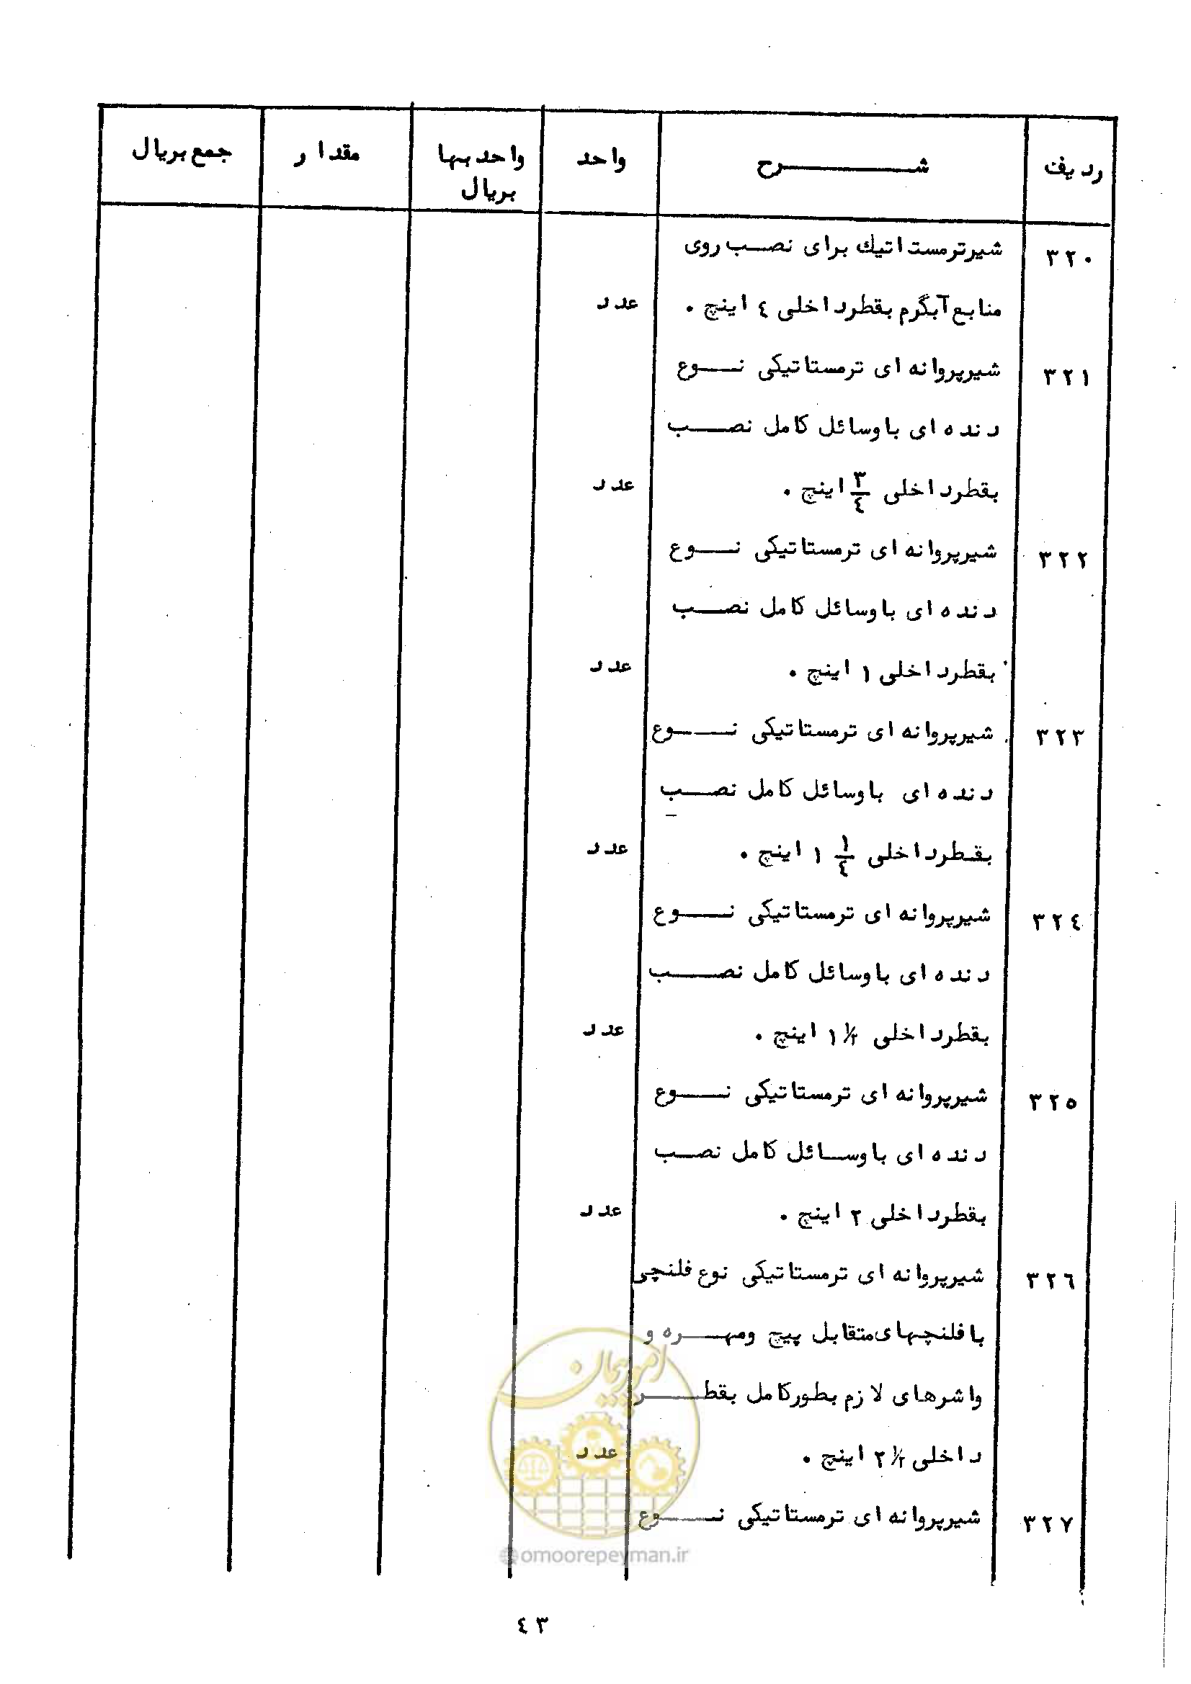 ردیف شرح واحد واحد بها مقدار جمع بریال
بریال
۳۲۰ شیرترمستاتیك برای نصب روی
منابع آبگرم بقطرداخلی ٤ اینچ . عدد
۳۲۱ شیرپروانه ای ترمستاتیکی نوع
دنده ای باوسائل کامل نصب
بقطرداخلی ۳/٤ اینچ . عدد
۳۲۲ شیرپروانه ای ترمستاتیکی نوع
دنده ای باوسائل کامل نصب
بقطرداخلی ۱ اینچ . عدد
۳۲۳ شیرپروانه ای ترمستاتیکی نوع
دنده ای باوسائل کامل نصب
بقطرداخلی ۱ ۱/٤ اینچ . عدد
۳۲٤ شیرپروانه ای ترمستاتیکی نوع
دنده ای باوسائل کامل نصب
بقطرداخلی ۱ ۱/۲ اینچ . عدد
۳۲٥ شیرپروانه ای ترمستاتیکی نوع
دنده ای باوسائل کامل نصب
بقطرداخلی ۲ اینچ . عدد
۳۲٦ شیرپروانه ای ترمستاتیکی نوع فلنچی
بافلنچهای متقابل پیچ ومهره و
واشرهای لازم بطورکامل بقطر
داخلی ۲ ۱/۲ اینچ . عدد
۳۲۷ شیرپروانه ای ترمستاتیکی نوع
امور پیمان
omoorepeyman.ir
٤۳